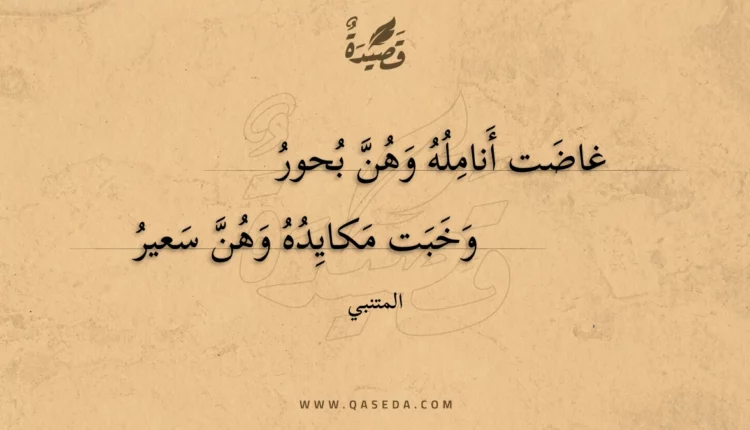 قَصِيدَةٌ
غاضَت أَنامِلُهُ وَهُنَّ بُحورُ
وَخَبَت مَكايِدُهُ وَهُنَّ سَعيرُ
المتنبي
WWW.QASEDA.COM